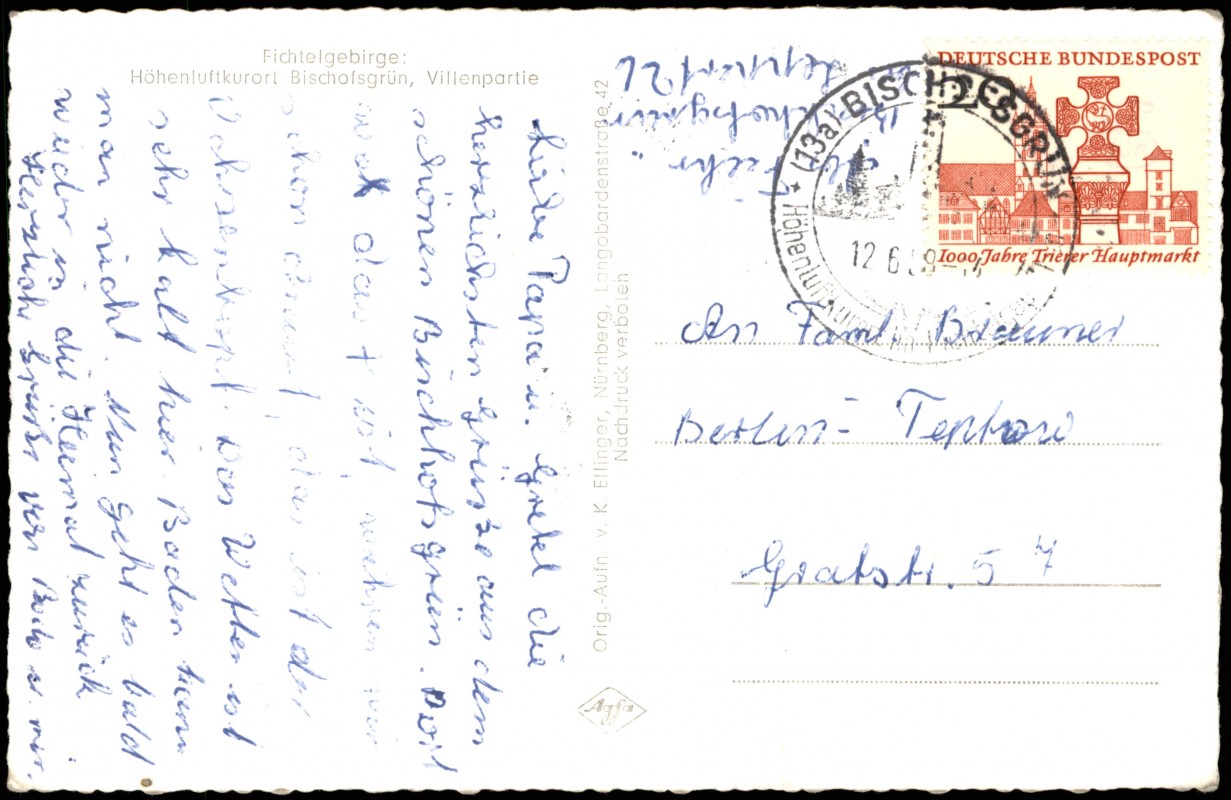 Fichtelgebirge:
Höhenluftkurort Bischofsgrün, Villenpartie
Liebe Papa u. Gretel die
herzlichsten Grüße aus dem
schönen Bischofsgrün. Dort
das ist
schon das ist der
Ochsenkopf. Das Wetter ist
sehr kalt hier. Baden kann
man nicht. Nun geht es bald
wieder in die Heimat zurück
Herzliche Grüße von Bodo u. mir.
Orig.-Aufn. v. K. Ellinger, Nürnberg, Langobardenstraße 42
Nachdruck verboten
Agfa
Bischofsgrün
DEUTSCHE BUNDESPOST
1000 Jahre Trierer Hauptmarkt
(13a) BISCHOFSGRÜN
12.6.59
An Faml. Brauner
Berlin-Teptow
Gratstr. 57